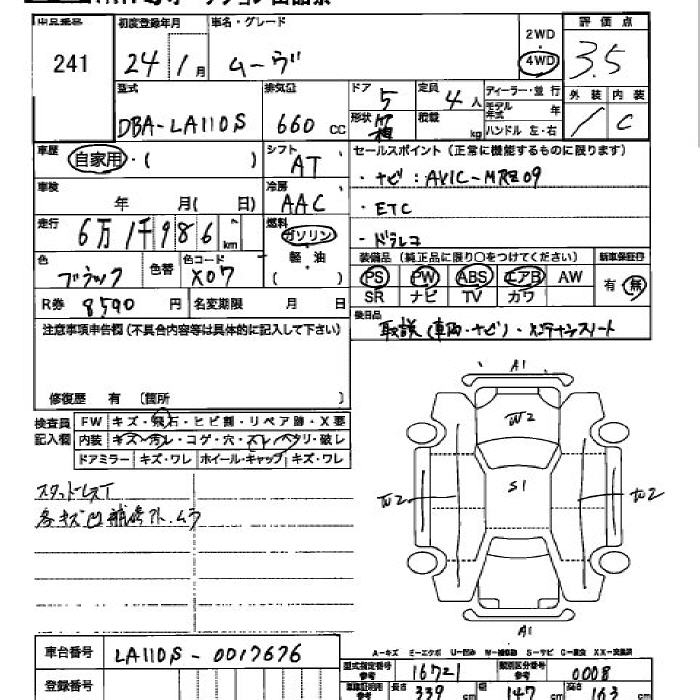 初度登録年月 車名・グレード 2WD 評価点
241 24年 1月 ムーヴ 4WD 3.5
型式 排気量 ドア 5 定員 4人 ディーラー・並行 外装 内装
DBA-LA110S 660cc 形状 積載 kg モデル年式 年 / C
ハンドル 左・右
車歴 自家用・( ) シフト AT セールスポイント(正常に機能するものに限ります)
車検 年 月( 日) 冷房 AAC ・ナビ:AVIC-MRZ09
・ETC
走行 6万1千986km 燃料 ガソリン ・ドラレコ
軽・油 ( )
色 ブラック 色替 色コード X07 装備品(純正品に限り○をつけてください) 新車保証印
PS PW ABS エアB AW 有・無
SR ナビ TV カワ
R券 8590円 名変期限 月 日 後日品
注意事項申告欄(不具合内容等は具体的に記入して下さい) 取説(車両・ナビ)・メンテナンスノート
修復歴 有 (箇所 )
検査員 FW キズ・飛石・ヒビ割・リペア跡・X要
記入欄 内装 キズ・汚レ・コゲ・穴・スレ・ヘタリ・破レ
ドアミラー キズ・ワレ ホイール・キャップ キズ・ワレ
スタッドレスT
各キズ凹補修アト、ムラ
A1
W2
W2 S1 W2
A1
A-キズ E-エクボ U-凹み W-補修跡 S-サビ C-腐食 XX-交換済
車台番号 LA110S-0017676
型式指定番号 参考 16721 類別区分番号 参考 0008
登録番号 車庫証明用 参考 長さ 339 cm 幅 147 cm 高さ 163 cm